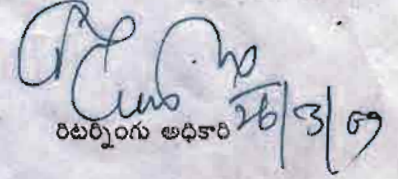 రిటర్నింగు అధికారి 26/3/09